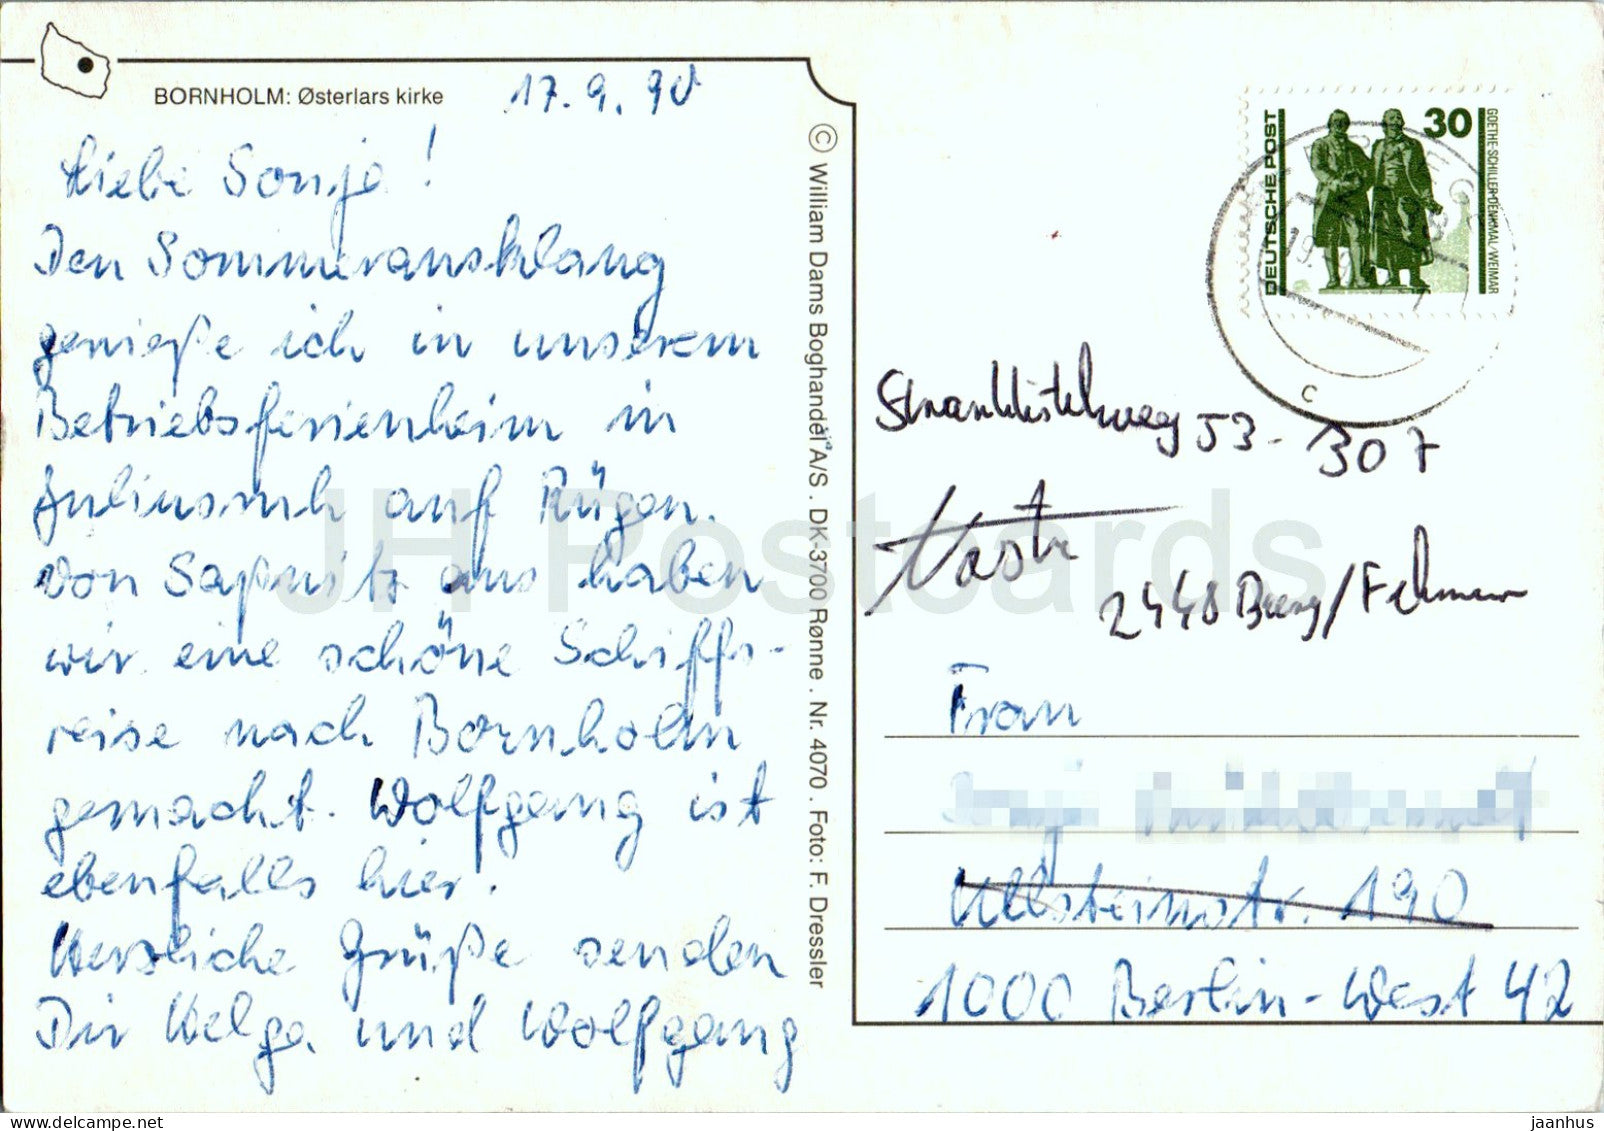 BORNHOLM: Østerlars kirke
17.9.90
Liebe Sonja!
Den Sommerausklang
genieße ich in unserem
Betriebsferienheim in
Juliusruh auf Rügen.
Von Saßnitz aus haben
wir eine schöne Schiffs-
reise nach Bornholm
gemacht. Wolfgang ist
ebenfalls hier.
Herzliche Grüße senden
Dir Helga und Wolfgang
© William Dams Boghandel A/S . DK-3700 Rønne . Nr. 4070 . Foto: F. Dressler
DEUTSCHE POST
30
GOETHE-SCHILLER-DENKMAL/WEIMAR
19.
C
53-307
2448 Burg/Fehmarn
Frau
Ullsteinstr. 190
1000 Berlin-West 42
JH Postcards
jaanhus
delcampe.net